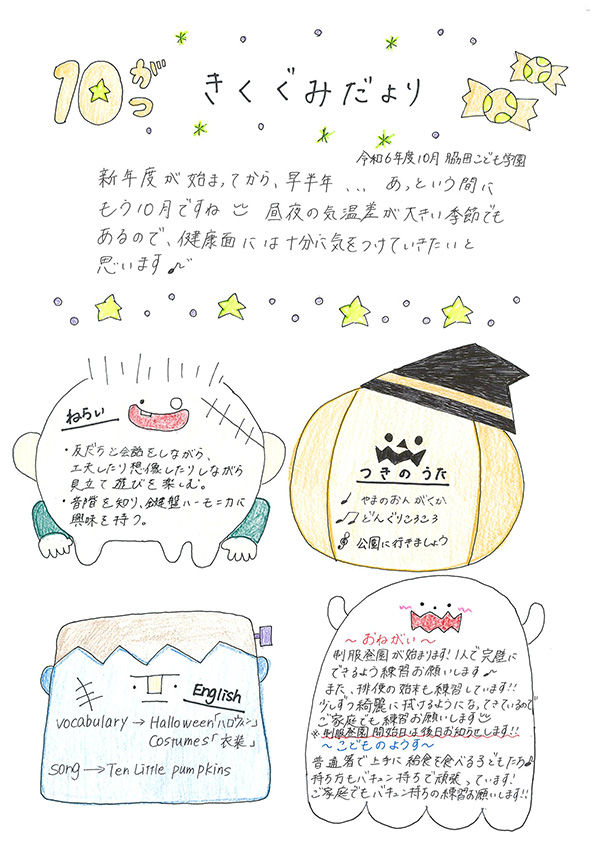 10がつ
きくぐみだより
令和6年度10月 脇田こども学園
新年度が始まってから、早半年、、、 あっという間に
もう10月ですね 昼夜の気温差が大きい季節でも
あるので、健康面には十分に気をつけていきたいと
思います♪
ねらい
・友だちと会話をしながら、
工夫したり想像したりしながら
見立て遊びを楽しむ。
・音階を知り、鍵盤ハーモニカに
興味を持つ。
つきのうた
♪ やまのおんがくか
♫ どんぐりころころ
𝄞 公園に行きましょう
English
vocabulary → Halloween「ハロウィン」
Costumes「衣装」
song → Ten Little pumpkins
～おねがい～
制服登園が始まります！1人で完璧に
できるよう練習お願いします♪
また、排便の始末も練習しています!!
少しずつ綺麗に拭けるようになってきているので
ご家庭でも練習お願いします
※制服登園開始日は後日お知らせします!!
～こどものようす～
普通箸で上手に給食を食べる子どもたち♪
持ち方もバキュン持ちで頑張っています！
ご家庭でもバキュン持ちの練習お願いします!!